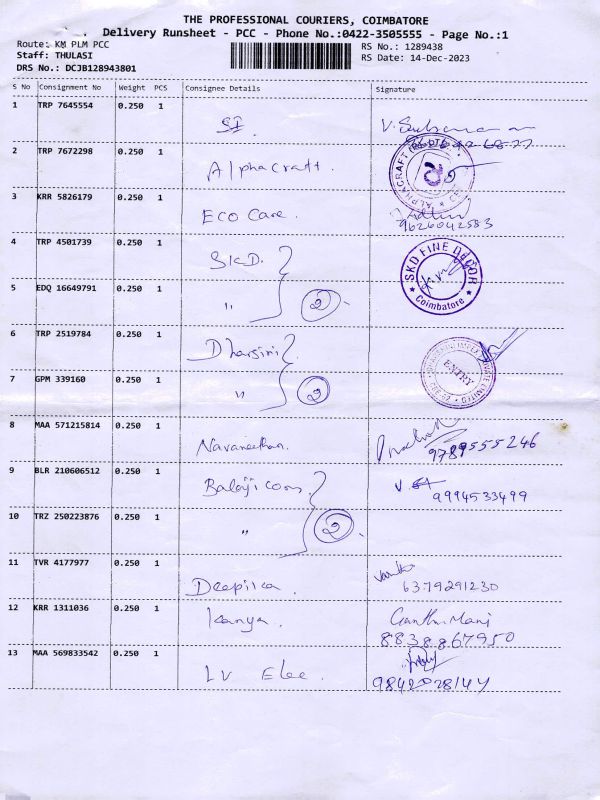 THE PROFESSIONAL COURIERS, COIMBATORE
Delivery Runsheet - PCC - Phone No.:0422-3505555 - Page No.:1
Route: KM PLM PCC
RS No.: 1289438
Staff: THULASI
RS Date: 14-Dec-2023
DRS No.: DCJB128943801
S No Consignment No Weight PCS Consignee Details Signature
1 TRP 7645554 0.250 1
2 TRP 7672298 0.250 1 Alphacraft.
3 KRR 5826179 0.250 1 Eco Care.
9626042583
4 TRP 4501739 0.250 1 SKD. SKD FINE DECOR Coimbatore
5 EDQ 16649791 0.250 1 " 2
6 TRP 2519784 0.250 1 Dharsini ENTRY
7 GPM 339160 0.250 1 " 2
8 MAA 571215814 0.250 1 Navaneethan.
9789555246
9 BLR 210606512 0.250 1 Balaji com
9994533499
10 TRZ 250223876 0.250 1 " 2
11 TVR 4177977 0.250 1 Deepika
6379291230
12 KRR 1311036 0.250 1 Kanya. Ganthi Mani
8838867950
13 MAA 569833542 0.250 1 LV Elec.
9842028144